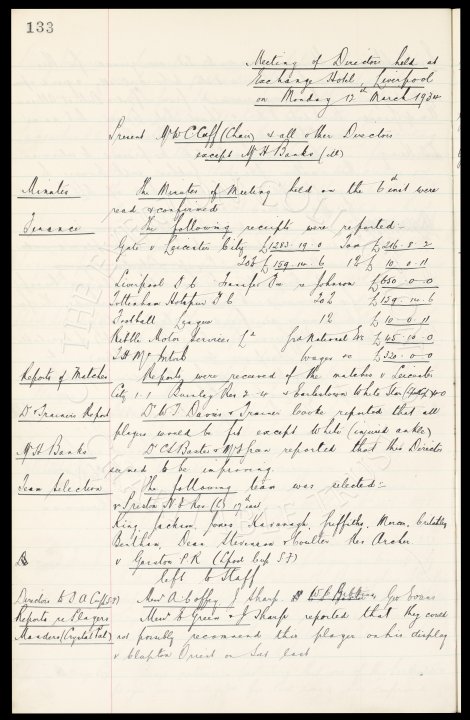 133
Meeting of Directors held at
Exchange Hotel, Liverpool
on Monday 12th March 1934
Present Mr W C Cuff (Chair) & all other Directors
except Mr H Banks (ill)
Minutes The Minutes of Meeting held on the 6th inst were
read & confirmed
Finance The following receipts were reported:-
Gate v Leicester City £1283.19.0 Tax £216.8.2
20% £159.14.6 1% £10.0.11
Liverpool F C Transfer Fee re Johnson £650.0.0
Tottenham Hotspur F C 20% £139.14.6
Football League 1% £10.0.11
Ribble Motor Services Ld £45.10.0
Wages £320.0.0
Reports of Matches Reports were received of the matches v Leicester
City 1-1 Burnley Res 2-4 & Earlestown White Star
Dr & Trainers Report Dr W J Davies & Trainer Cooke reported that all
players would be fit except White (injured ankle)
Mr H Banks Dr C S Baxter & Mr reported that this Director
seemed to be improving.
Team Selection The following team was selected:-
v Preston N E Res (C) 17th inst
King, Jackson, Jones, Kavanagh, Griffiths, Mercer, Critchley
Bentham, Dean, Stevenson & Coulter Res Archer
v Garston P.R (Lpool Cup S F)
left to Staff
Directors to F A Cup S-F Messrs A Coffey, J Sharp Geo Evans
Reports re Players Messrs C Green & J Sharp reported that they could
Manders (Crystal Pal) not possibly recommend this player on his display
v Clapton Orient on Sat last